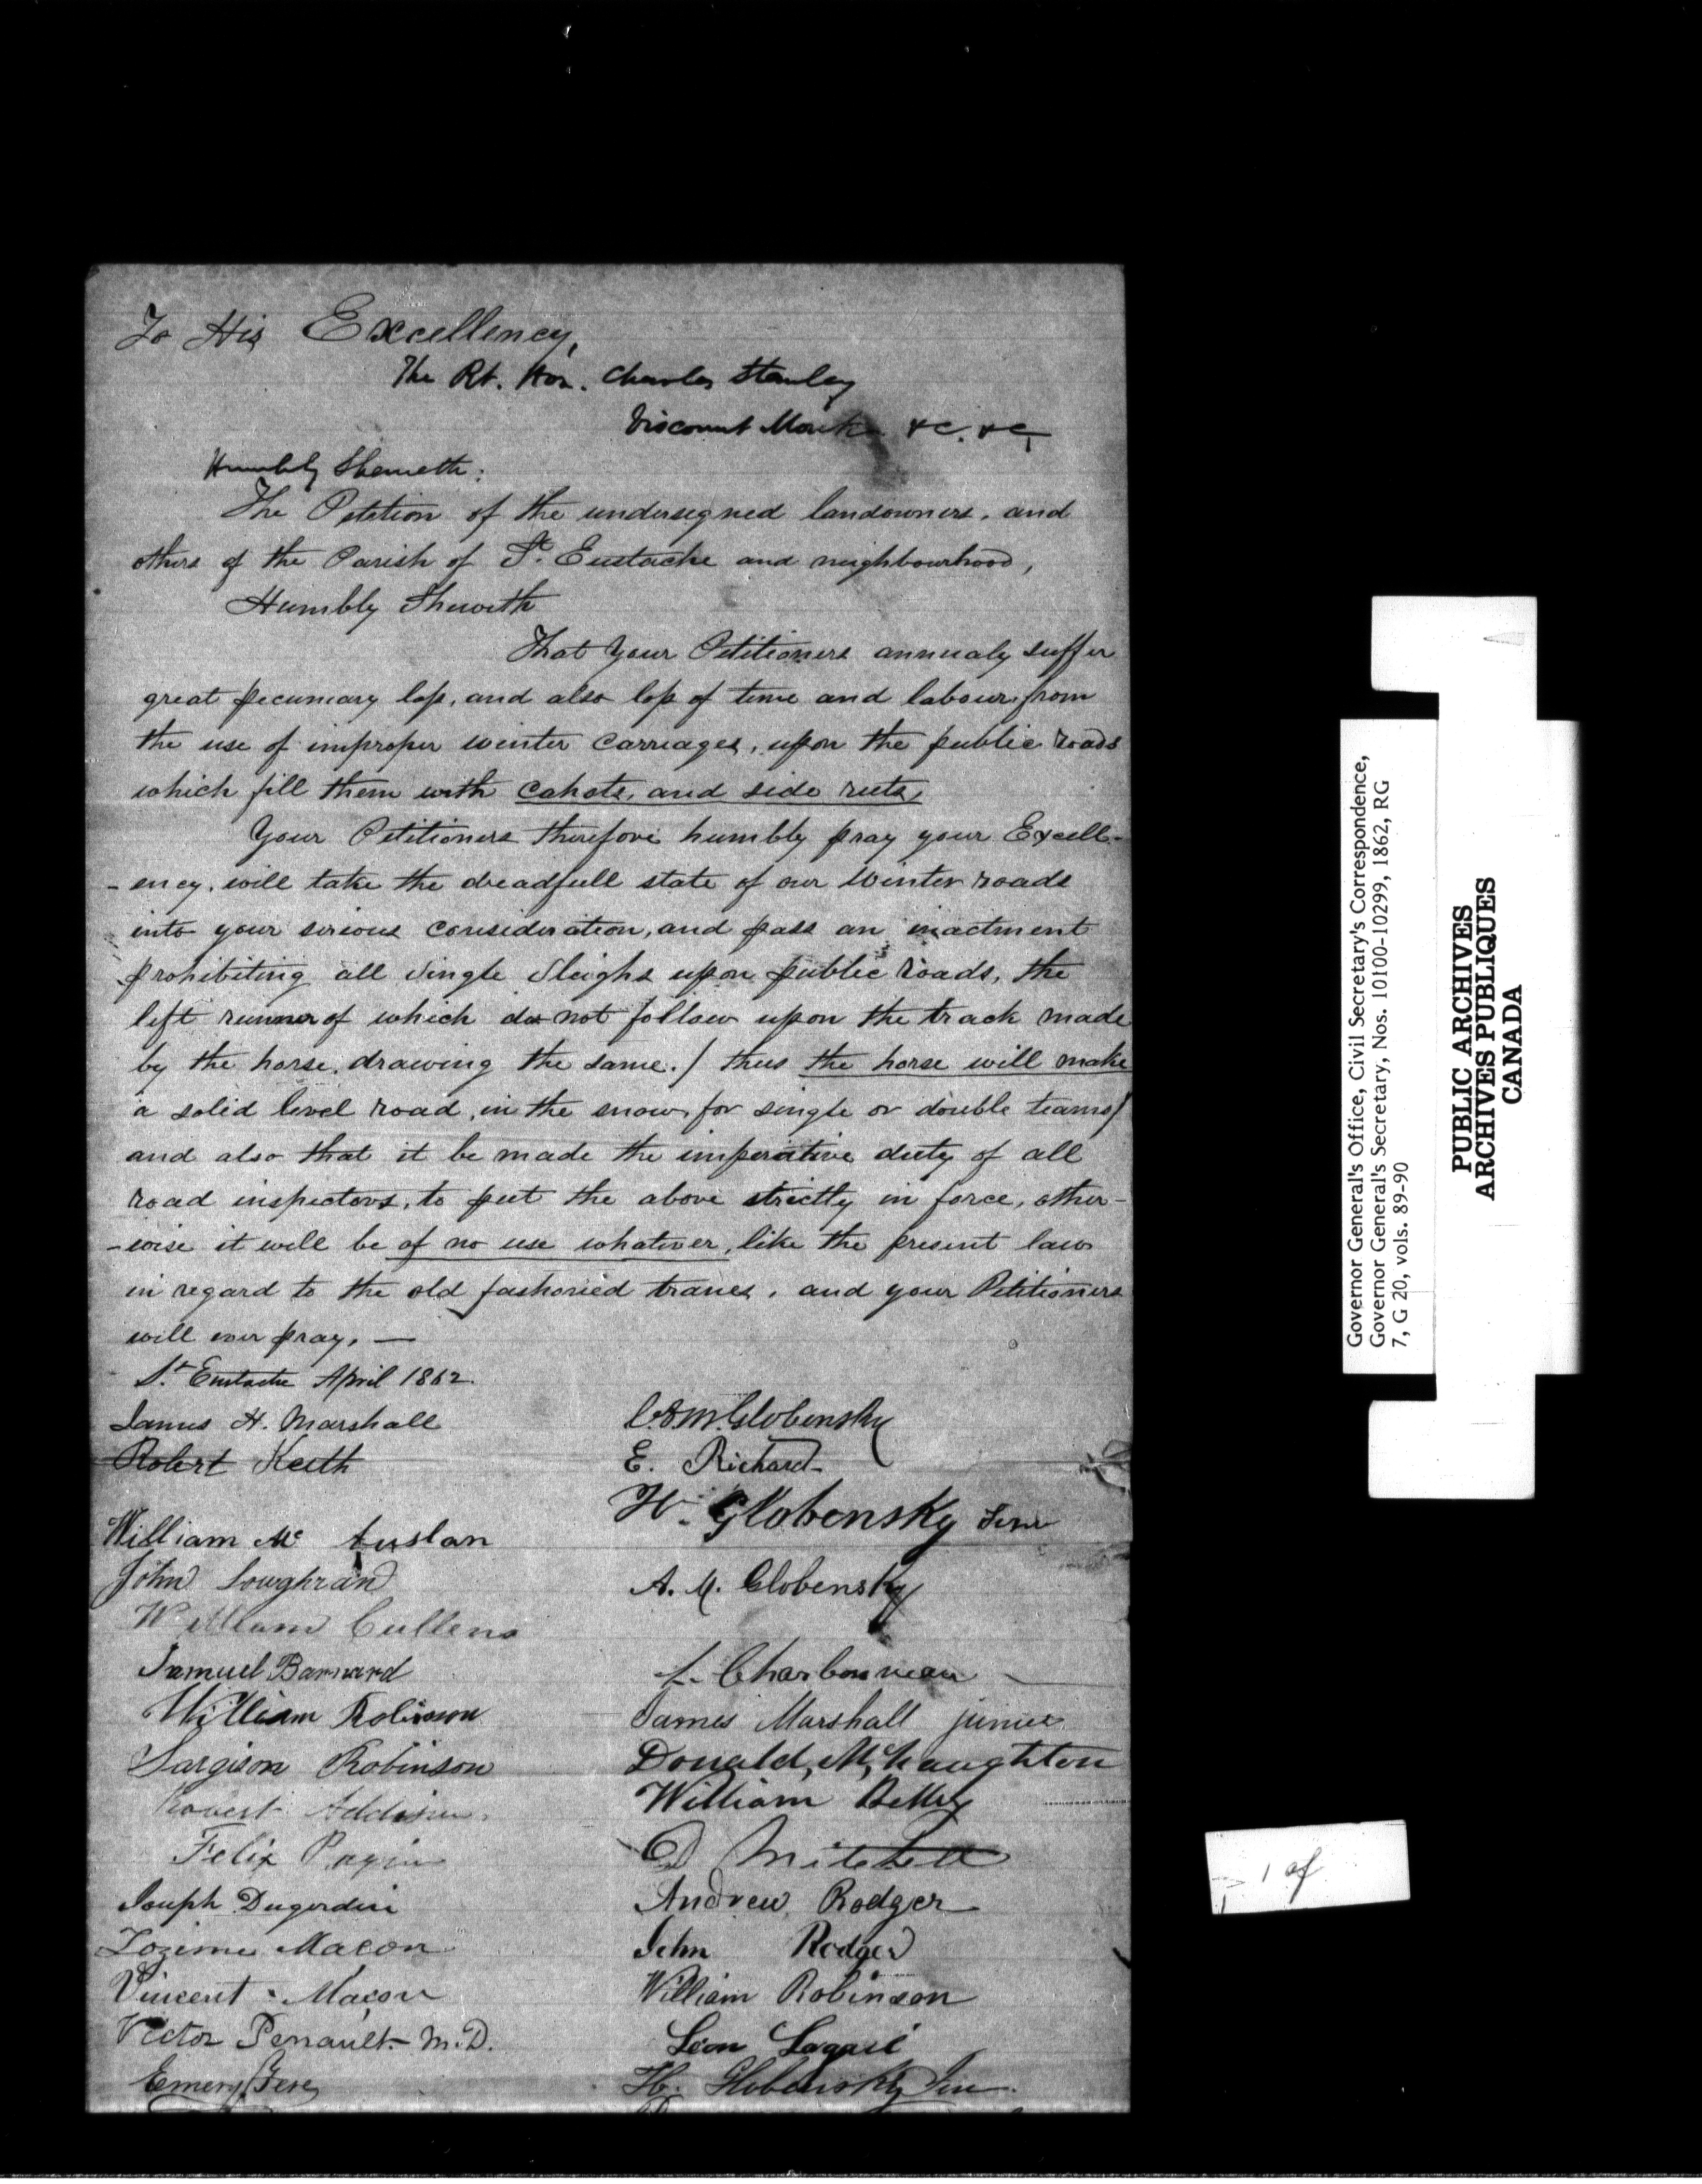 To His Excellency,
The Rt. Hon. Charles Stanley
Viscount Monck &c. &c,
Humbly Sheweth:
The Petition of the undersegned landowners, and
others of the Parish of St. Eustache and neighbourhood,
Humbly Sheweth
That Your Petitioners annualy suffer
great pecuniary loss, and also loss of time and labour from
the use of improper winter carriages, upon the public roads
which fill them with cahots, and side ruts,
Your Petitioners therefore humbly pray your Excell-
-ency, will take the dreadfull state of our Winter roads
into your serious consideration, and pass an inactment
prohibiting all Single Sleighs upon public roads, the
left runner of which do not follow upon the track made
by the horse, drawing the same. / thus the horse will make
a solid level road, in the snow, for single or double teams/
and also that it be made the imperative duty of all
road inspectors, to put the above strictly in force, other-
-wise it will be of no use whatever, like the present law
in regard to the old fashoned tranes, and your Petitioners
will ever pray, —
St. Eustache April 1862.
James H. Marshall
Robert Keith
William Mc Auslan
John Loughran
William Cullens
Samuel Barnard
William Robinson
Sargison Robinson
Robert Addison
Felix
Joseph Dugardin
Zozime Macon
Vincent Macon
Victor Perrault M.D.
Emery Fere
C.A.M. Globensky
E. Richard
H. Globensky Senr
A. M. Globensky
L. Charbonneau
James Marshall junier
Donald, McNaughton
William
D Mitchell
Andrew Rodger
John Rodger
William Robinson
Leon Lagacé
H. Globensky Jun.
Governor General's Office, Civil Secretary's Correspondence,
Governor General's Secretary, Nos. 10100-10299, 1862, RG
7, G 20, vols. 89-90
PUBLIC ARCHIVES
ARCHIVES PUBLIQUES
CANADA
1 of